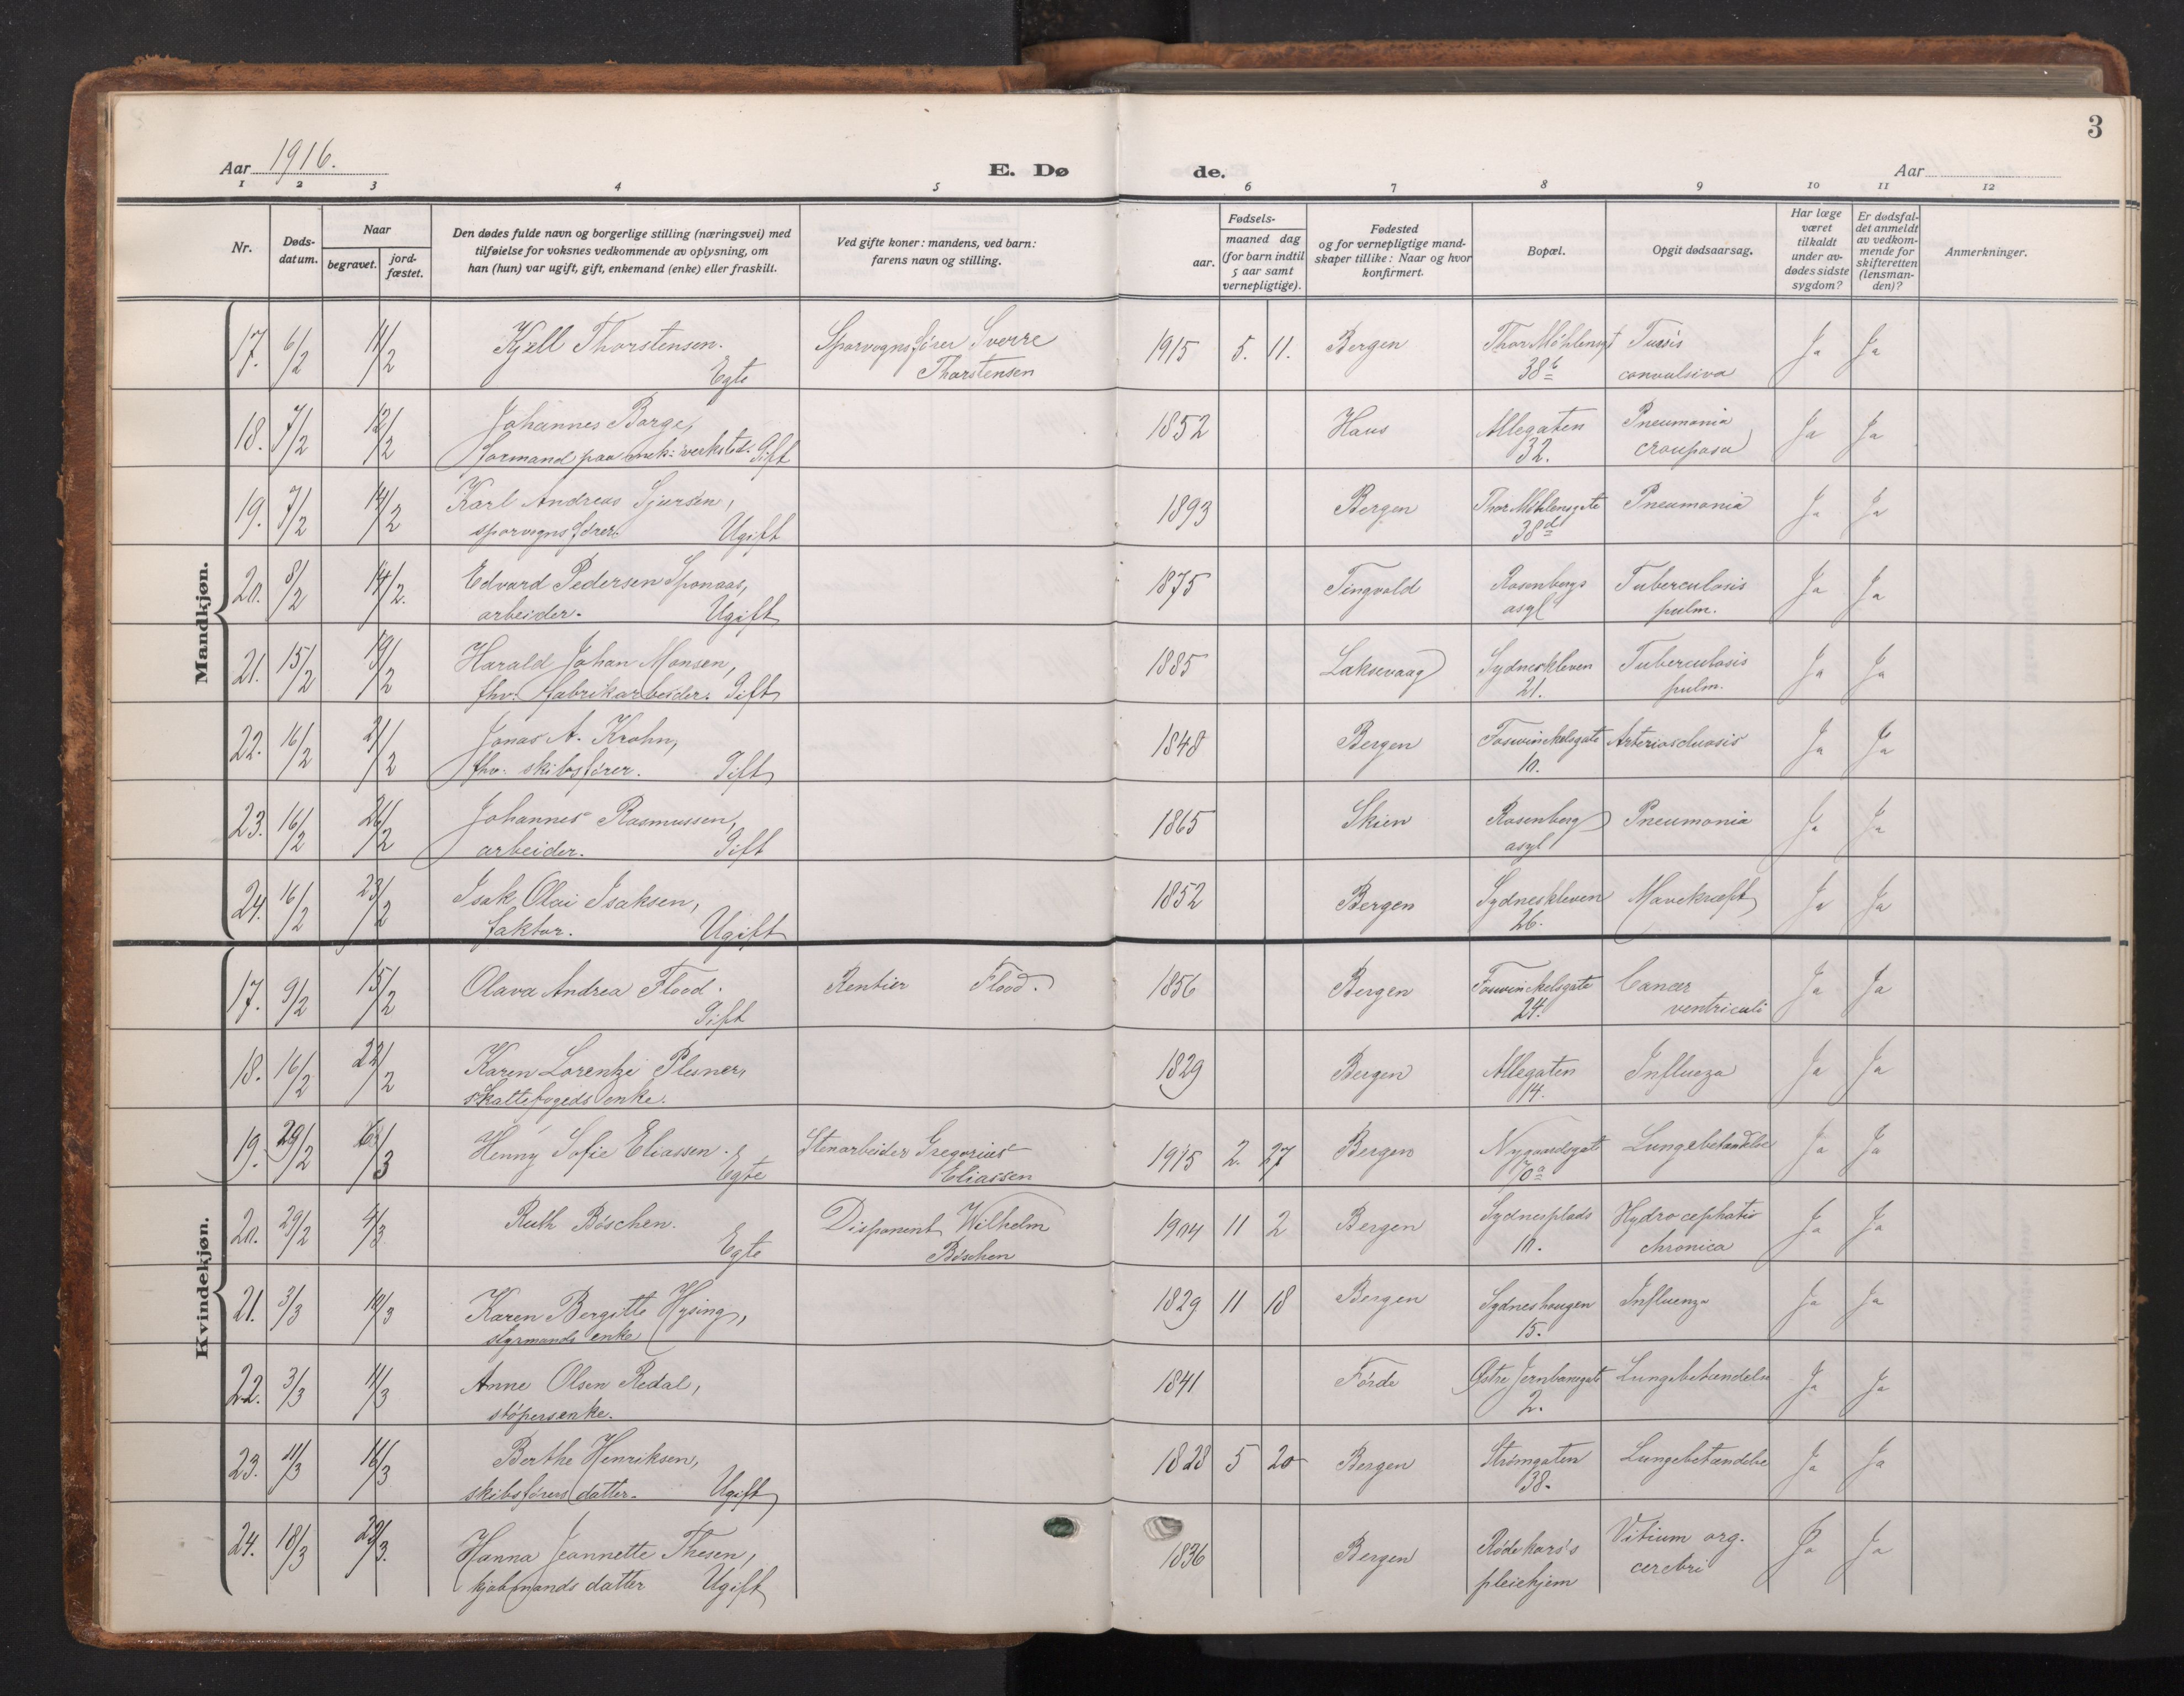 3
Aar 1916.
E. Dø
de.
Aar
1 2 3 4 5 6 7 8 9 10 11 12
Nr.
Døds-
datum.
Naar
begravet.
jord-
fæstet.
Den dødes fulde navn og borgerlige stilling (næringsvei) med
tilføielse for voksnes vedkommende av oplysning, om
han (hun) var ugift, gift, enkemand (enke) eller fraskilt.
Ved gifte koner: mandens, ved barn:
farens navn og stilling.
Fødsels-
aar.
maaned dag
(for barn indtil
5 aar samt
vernepligtige).
Fødested
og for vernepligtige mand-
skaper tillike: Naar og hvor
konfirmert.
Bopæl.
Opgit dødsaarsag.
Har læge
været
tilkaldt
under av-
dødes sidste
sygdom?
Er dødsfal-
det anmeldt
av vedkom-
mende for
skifteretten
(lensman-
den)?
Anmerkninger.
Mandkjøn.
17. 6/2 11/2 Kjell Thorstensen. Sporvognsfører Sverre 1915 5. 11. Bergen Thor Møhlensgt Tussis Ja Ja
Egte Thorstensen 38b convulsiva
18. 7/2 12/2 Johannes Borge, 1852 Haus Allegaten Pneumonia Ja Ja
Formand paa mek: verksted. Gift 32. crouposa
19. 7/2 14/2 Karl Andreas Sjursen, 1893 Bergen Thor Møhlensgate Pneumonia Ja Ja
sporvognsfører. Ugift 38d
20. 8/2 14/2. Edvard Pedersen Sponaas, 1875 Tingvold Rosenbergs Tuberculosis Ja Ja
arbeider. Ugift asyl pulm.
21. 15/2 19/2 Harald Johan Monsen, 1885 Laksevaag Sydneskleven Tuberculosis Ja Ja
fhv. fabrikarbeider. Gift 21. pulm.
22. 16/2 21/2 Jonas A. Krohn, 1848 Bergen Foswinckelsgate Arteriosclerosis Ja Ja
fhv. skibsfører. Gift 10.
23. 16/2 26/2 Johannes Rasmussen, 1865 Skien Rosenberg Pneumonia Ja Ja
arbeider. Gift asyl
24. 16/2 23/2 Isak Olai Isaksen, 1852 Bergen Sydneskleven Mavekræft Ja Ja
faktor. Ugift 26.
Kvindekjøn.
17. 9/2 15/2 Olava Andrea Flood. Rentier Flood. 1856 Bergen Foswinckelsgate Cancer Ja Ja
Gift 24. ventriculi
18. 16/2 22/2 Karen Lorentze Plesner, 1829 Bergen Allegaten Influeza Ja Ja
skattefogeds enke. 14.
19. 29/2 6/3 Henny Sofie Eliassen. Stenarbeider Gregorius 1915 2. 27 Bergen Nygaardsgate Lungebetændelse Ja Ja
Egte Eliassen 70a
20. 29/2 4/3 Ruth Böschen. Disponent Wilhelm 1904 11 2 Bergen Sydnesplads Hydrocephalis Ja Ja
Egte Böschen 10. chronica
21. 3/3 10/3 Karen Bergitte Hysing, 1829 11 18 Bergen Sydneshaugen Influenza Ja Ja
styrmands enke 15.
22. 3/3 11/3 Anne Olsen Redal, 1841 Förde Østre Jernbanegate Lungebetændelse Ja Ja
støpersenke. 2.
23. 11/3 16/3 Berthe Henriksen, 1828 5 20 Bergen Strømgaten Lungebetændelse Ja Ja
skibsførers datter. Ugift 38.
24. 18/3 22/3. Hanna Jeannette Thesen, 1836 Bergen Røde kors's Vitium org. Ja Ja
kjøbmands datter Ugift pleiehjem cerebri